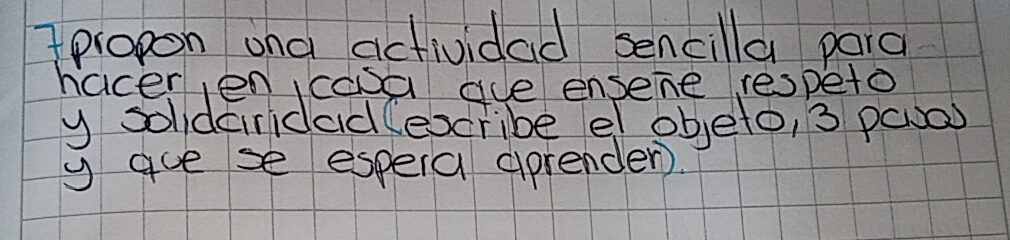 7 propon una actividad sencilla para
hacer en casa que enseñe respeto
y solidaridad (escribe el objeto, 3 pasos
y que se espera aprender).